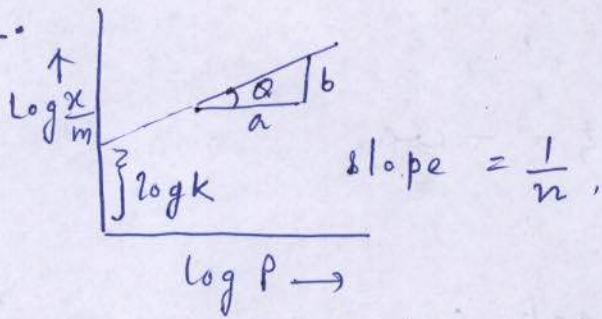 Log x/m
θ
b
a
log k
slope = 1/n,
log P →